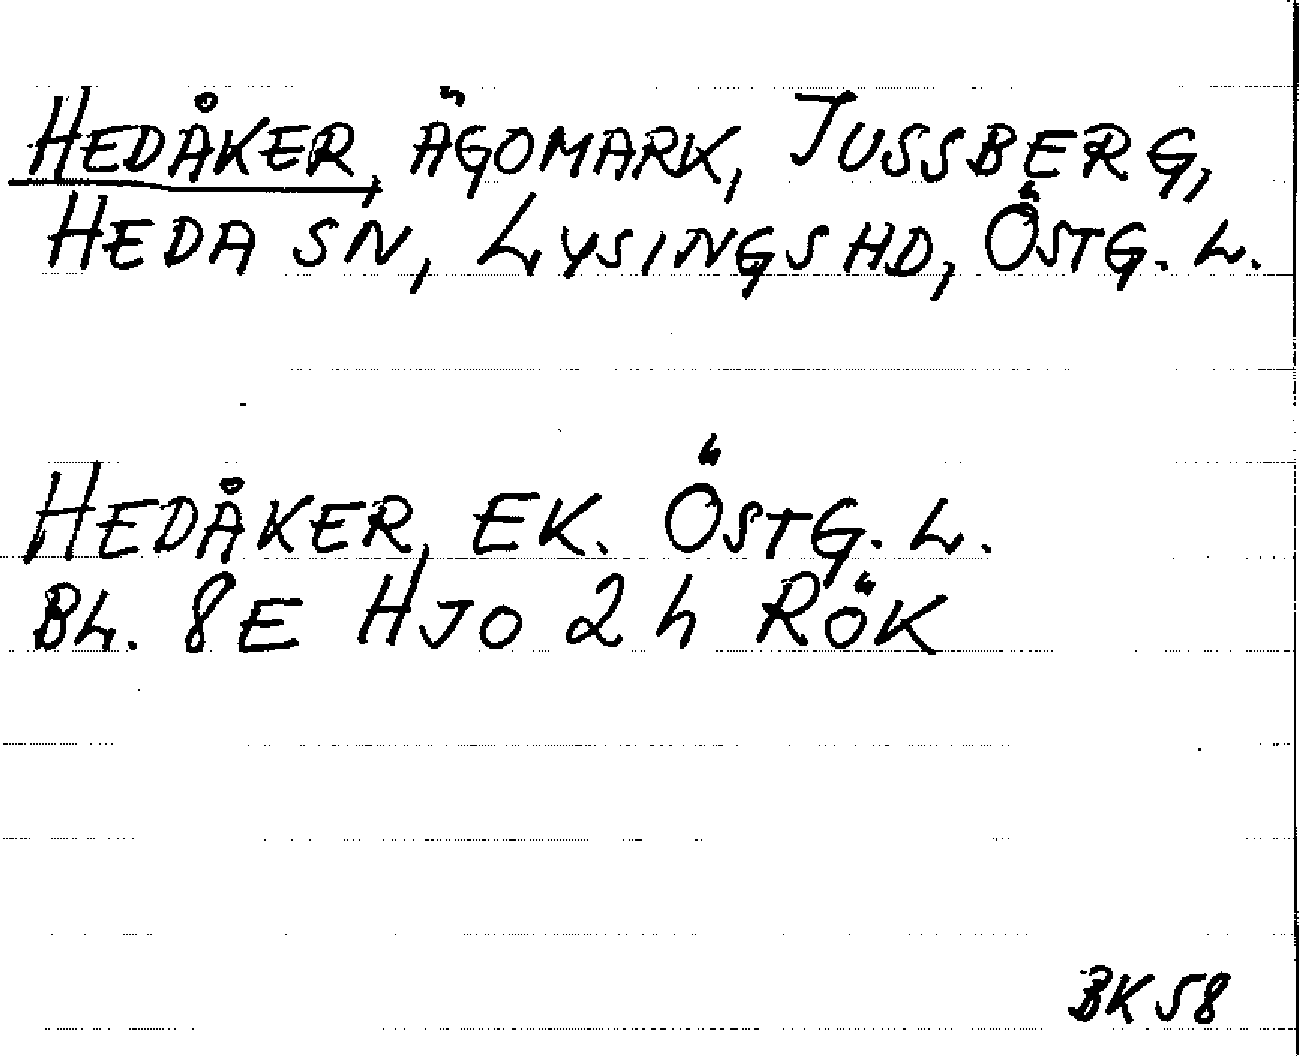 HEDÅKER, ÄGOMARK, JUSSBERG,
HEDA SN, LYSINGS HD, ÖSTG. L.
HEDÅKER, EK. ÖSTG. L.
BL. 8E HJO 2h RÖK
BK 58